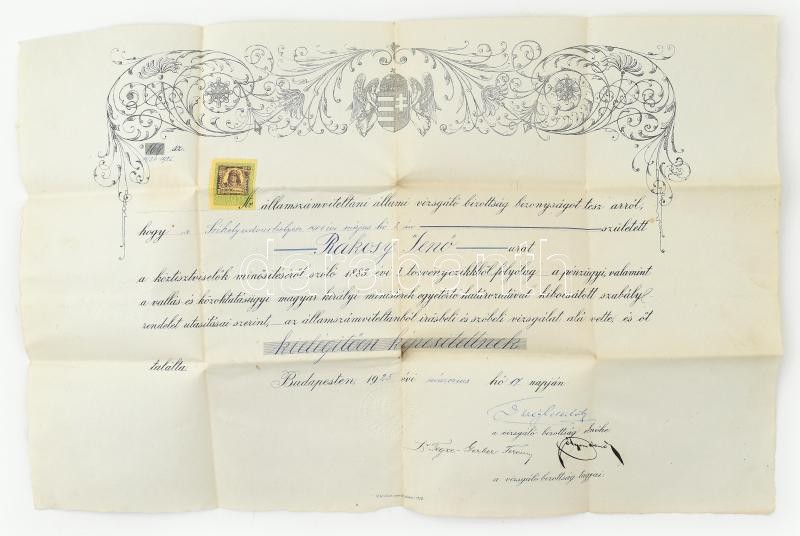 69 sz.
Az államszámviteltani állami vizsgáló bizottság bizonyságot tesz arról,
hogy a Székelyudvarhelyen május hó 2-án született
Rákosy Jenő urat
a köztisztviselők minősítéséről szóló 1883 évi I. törvényczikkből folyólag a pénzügyi, valamint
a vallás és közoktatásügyi magyar királyi miniszterek egyetértő határozatával kibocsátott szabály-
rendelet utasításai szerint, az államszámviteltanból írásbeli és szóbeli vizsgálat alá vette, és őt
kielégítően képesítettnek
találta.
Budapesten 1925 évi március hó 17 napján
a vizsgáló bizottság elnöke
Dr Ferenc
a vizsgáló bizottság tagjai.
darabanth.com